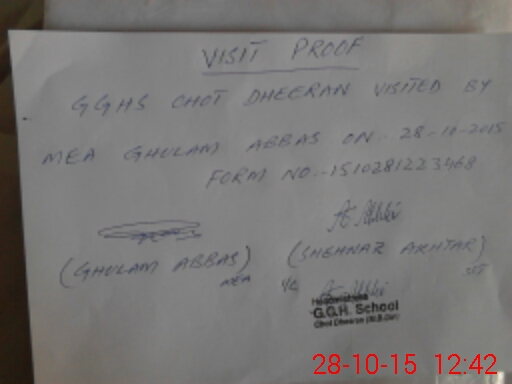 VISIT PROOF
GGHS CHOT DHEERAN VISITED BY
MEA GHULAM ABBAS ON:- 28-10-2015
FORM NO:-1510281223468
(GHULAM ABBAS) (SHEHNAZ AKHTAR)
MEA SST
I/C
Headmistress
G.G.H. School
Chot Dheeran (M.B.Din)
28-10-15 12:42